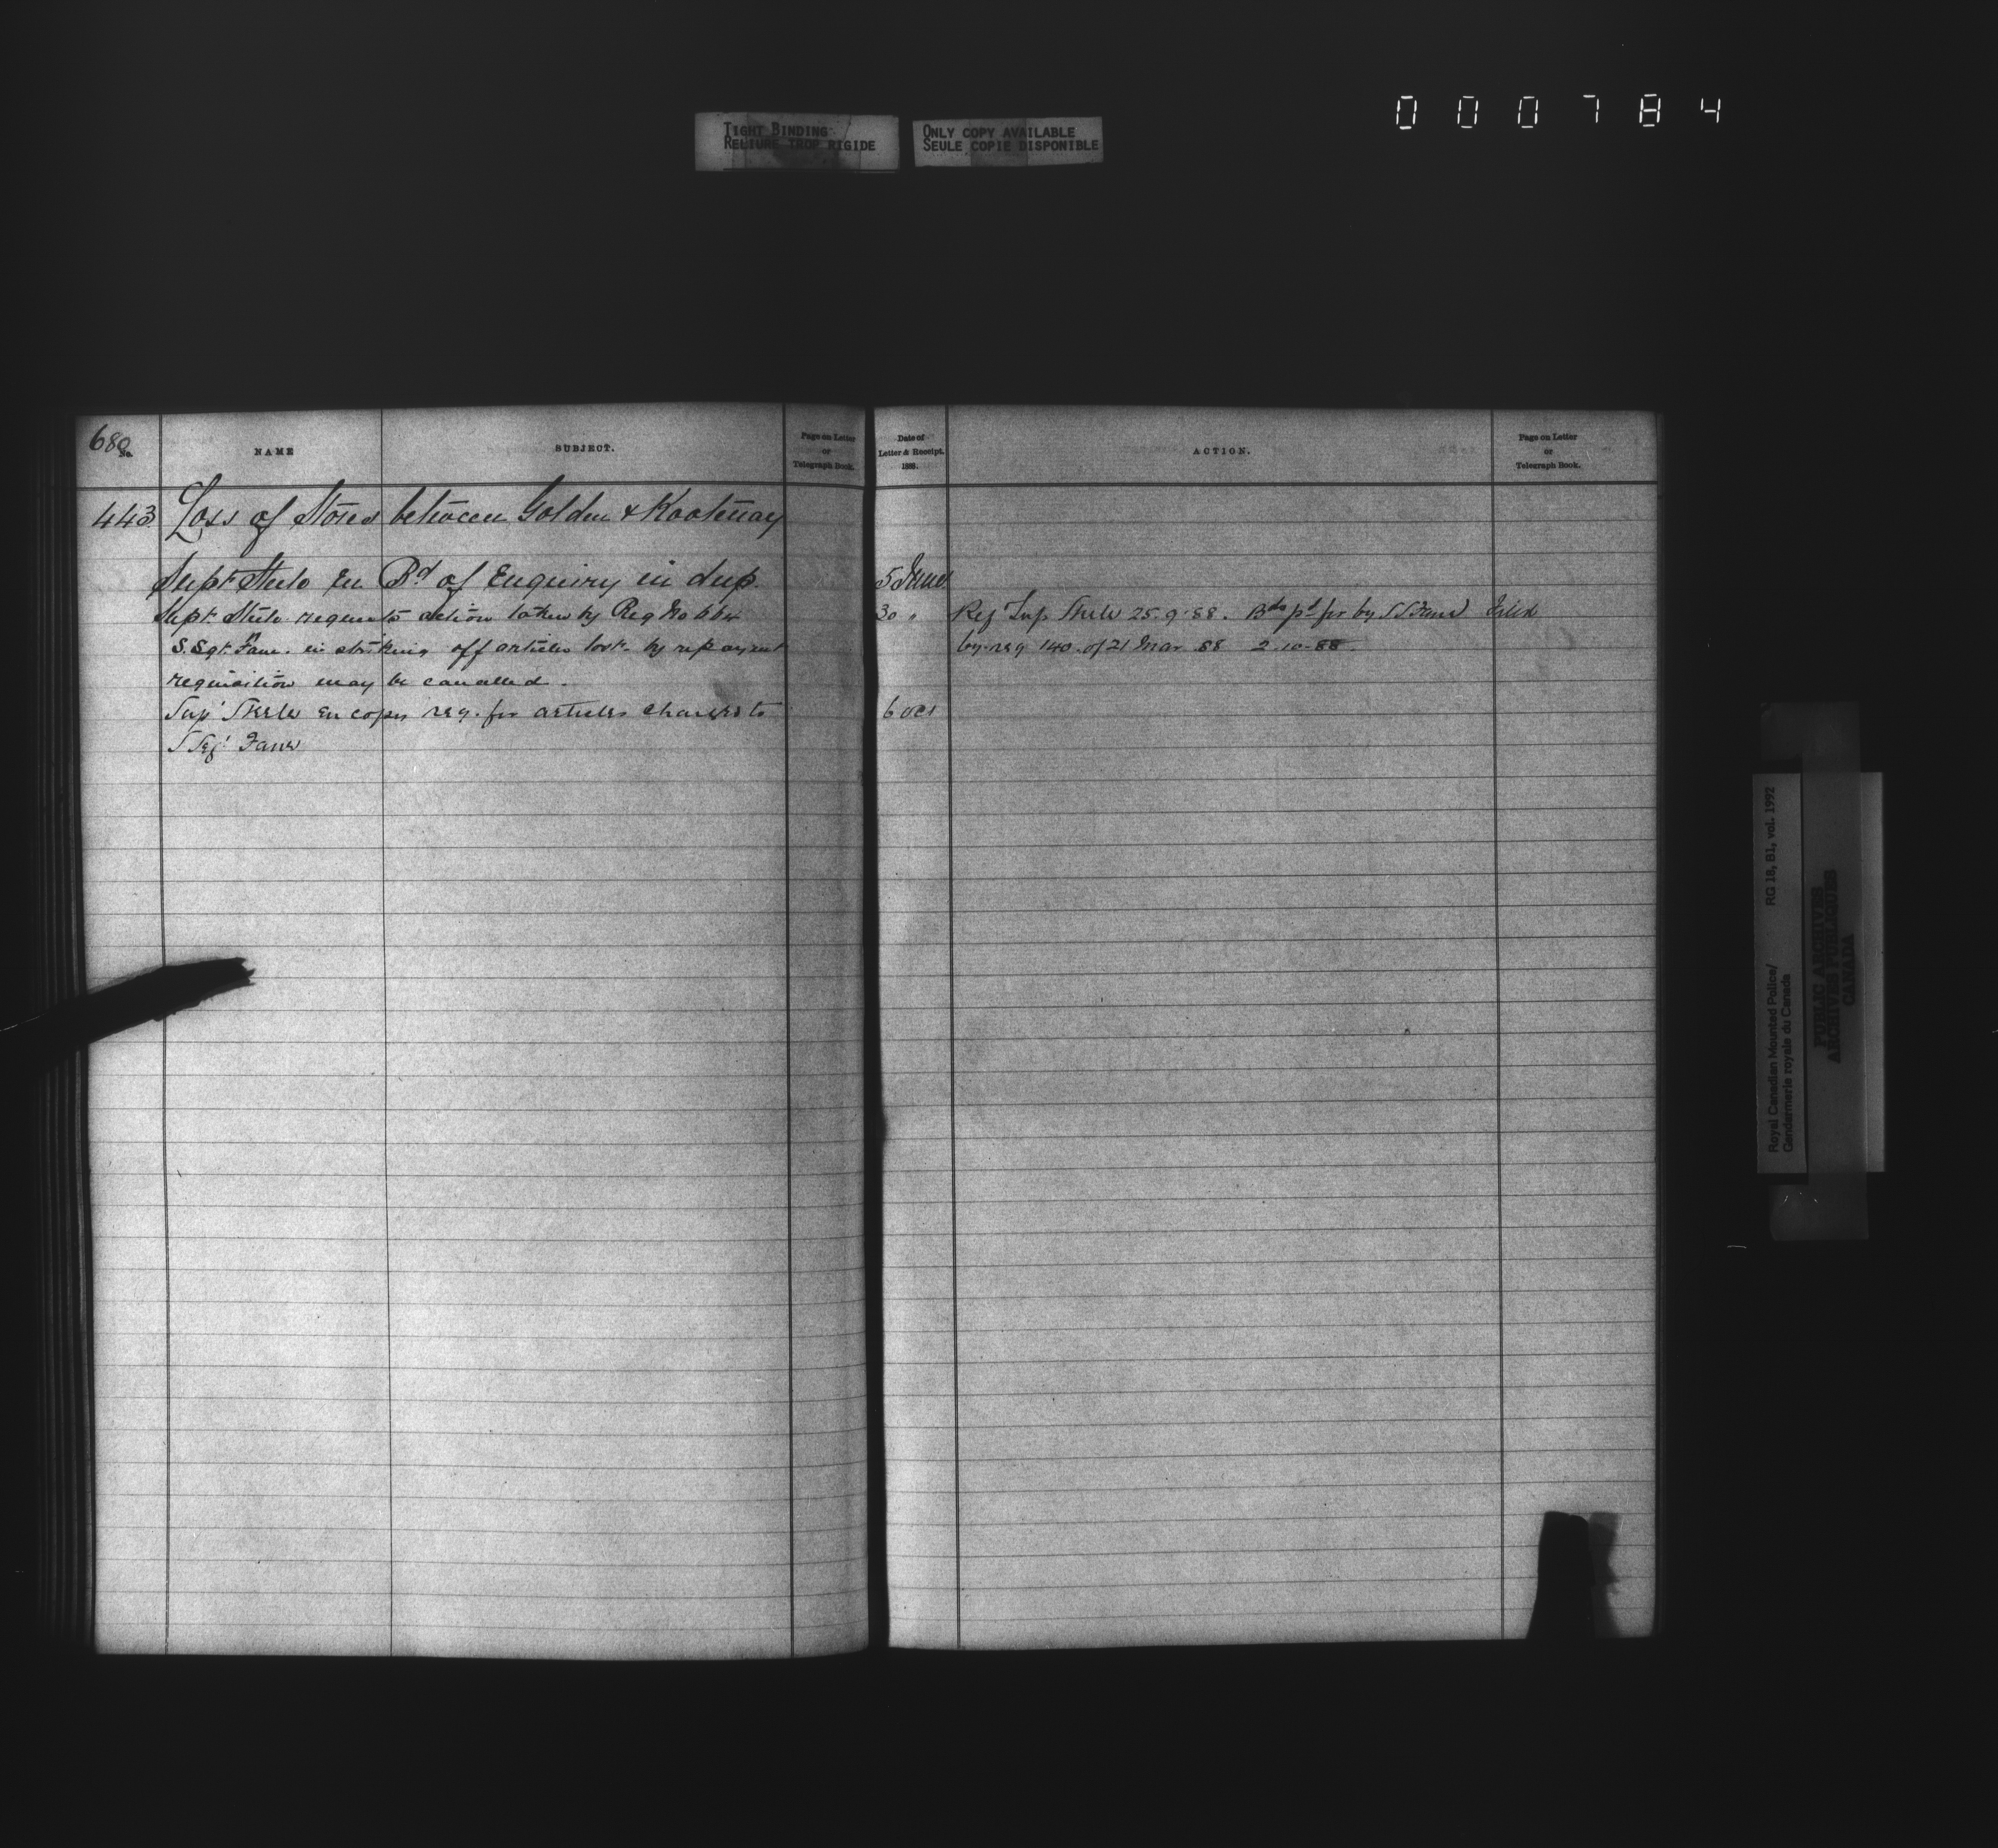 000784
TIGHT BINDING
RELIURE TROP RIGIDE
ONLY COPY AVAILABLE
SEULE COPIE DISPONIBLE
680
No.
NAME
SUBJECT.
Page on Letter
or
Telegraph Book.
443 Loss of Stores between Golden & Kootenay
Supt Steele En Bd of Enquiry in dup
Supt. Steele requests action taken by Reg No
S. Sgt. Fane in striking off articles lost by repayment
requisition may be cancelled.
Supt Steele En copy req. for articles charged to
S Sergt Fane
Date of
Letter & Receipt.
1888.
ACTION.
Page on Letter
or
Telegraph Book.
5 June
30 "
Ref Sup Steele 25.9.88. pd for by S S Fane
by req 140 of 21 Mar 88 2.10.88.
6 Oct
Royal Canadian Mounted Police/
Gendarmerie royale du Canada
RG 18, B1, vol. 1992
PUBLIC ARCHIVES
ARCHIVES PUBLIQUES
CANADA